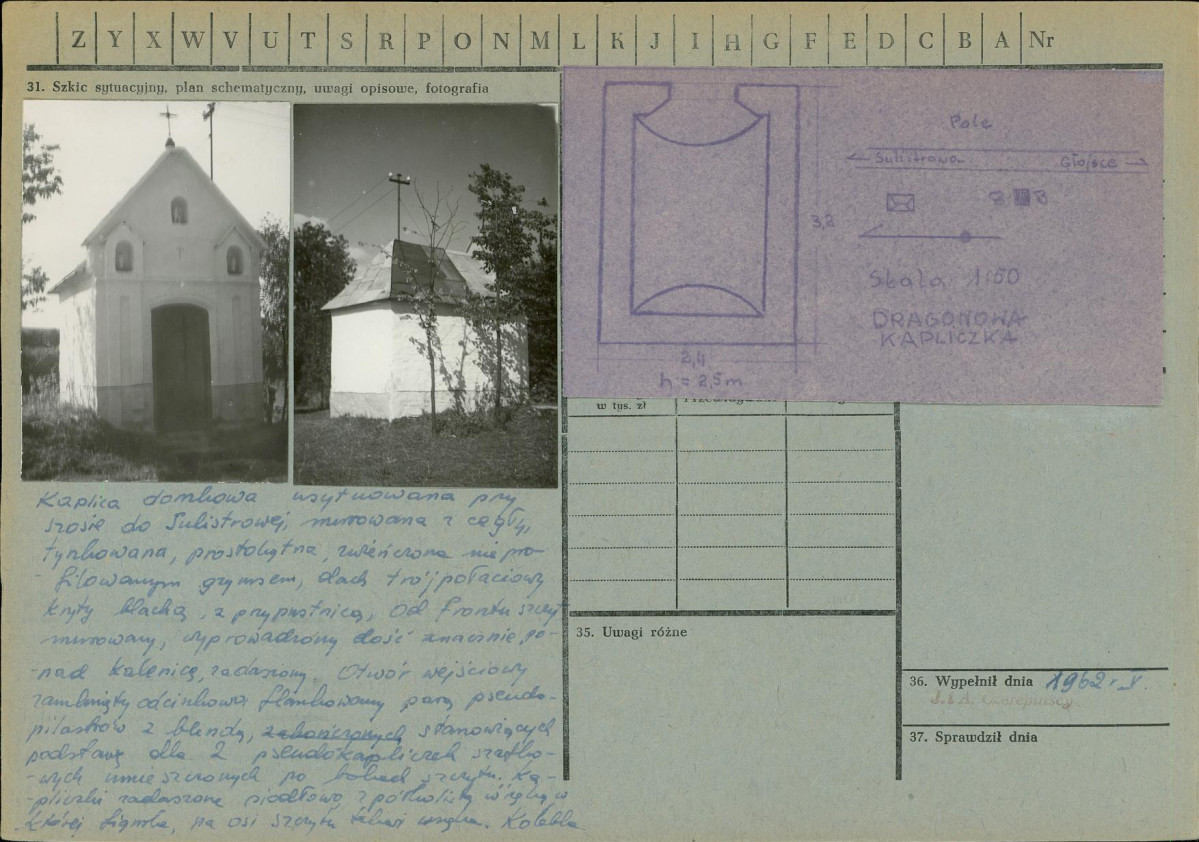 Z Y X W V U T S R P O N M L K J I H G F E D C B A Nr
31. Szkic sytuacyjny, plan schematyczny, uwagi opisowe, fotografia
Pole
Sulistrowa
Głojsce
3,2
Skala 1:50
DRAGONOWA
KAPLICZKA
2,4
h = 2,5m
w tys. zł
Kaplica domkowa usytuowana przy
szosie do Sulistrowej, murowana z cegły,
tynkowana, prostokątna, zwieńczona niepro-
-filowanym gzymsem, dach trójpołaciowy
kryty blachą, z przypustnicą, Od frontu szczyt
murowany, wyprowadzony dość znacznie, po-
-nad kalenicę, zadaszony. Otwór wejściowy
zamknięty odcinkowo flankowany parą pseudo-
pilastrów z blendą, zakończonych stanowiących
podstawę dla 2 pseudokapliczek szafko-
-wych umieszczonych po bokach szczytu. Ka-
-pliczki zadaszone siodłowo, z półkolistą wnęką w
której figurka, na osi szczytu takaż wnęka. Kolebka
35. Uwagi różne
36. Wypełnił dnia 1962 r V.
J. i A.
37. Sprawdził dnia